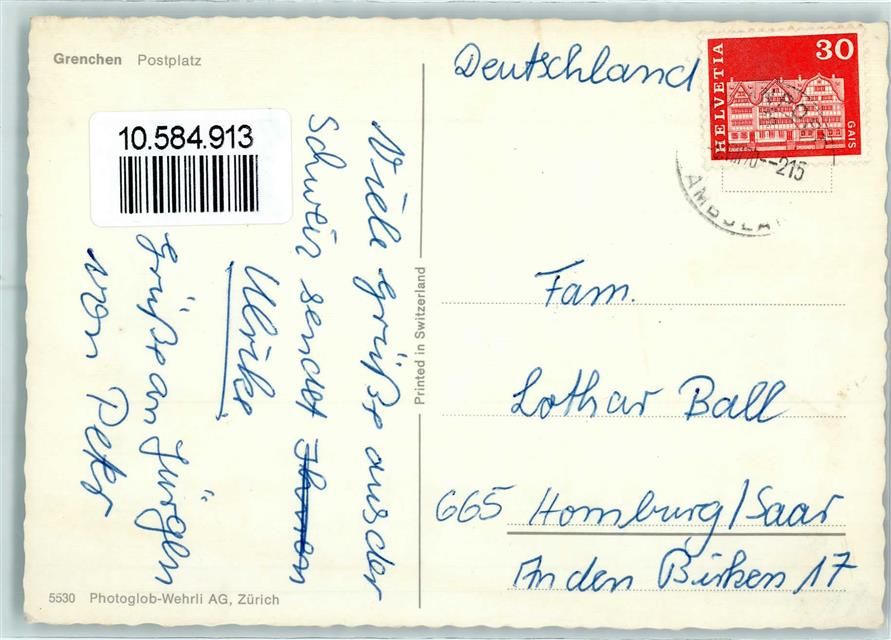 Grenchen Postplatz
10.584.913
Viele Grüße aus der
Schweiz sendet Ihnen
Ulrike
Grüße an Jürgen
von Peter
5530 Photoglob-Wehrli AG, Zürich
Printed in Switzerland
Deutschland
HELVETIA
30
GAIS
215
AMBULA
Fam.
Lothar Ball
665 Homburg/Saar
An den Birken 17